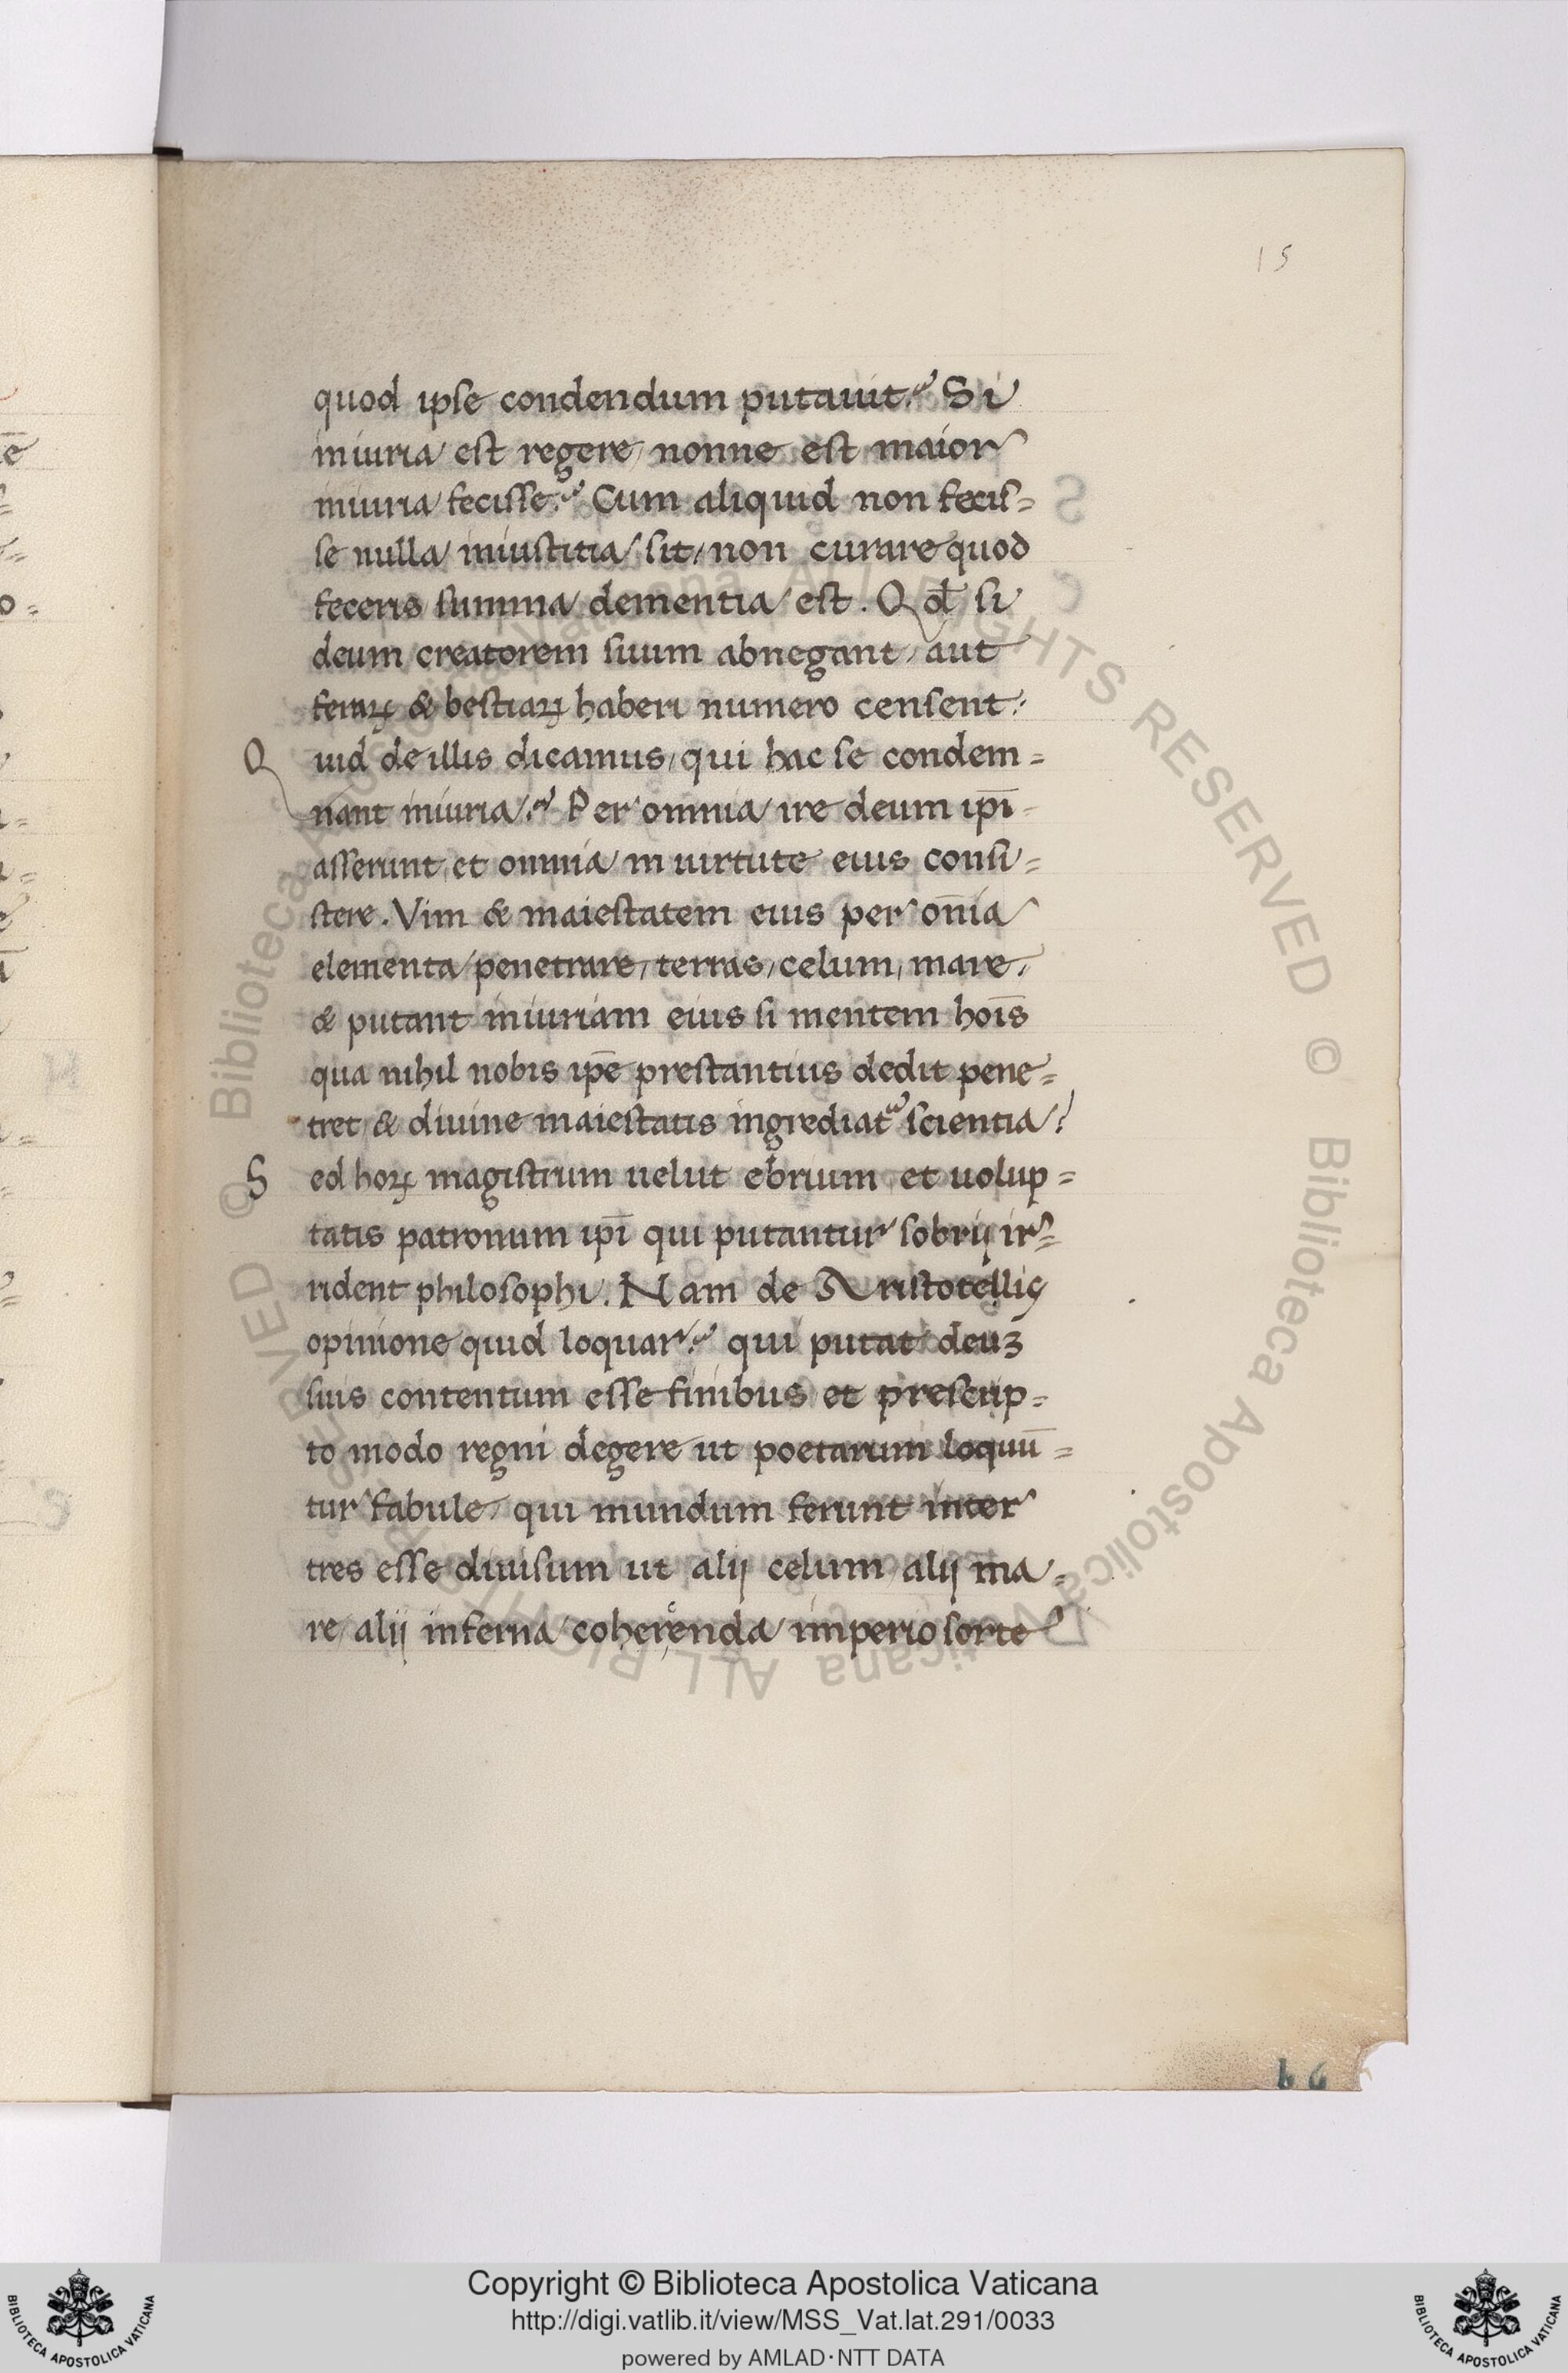 15
quod ipse condendum putauit? Si
iniuria est regere, nonne est maior
iniuria fecisse? Cum aliquid non fecis=
se nulla iniustitia sit, non curare quod
feceris summa dementia est. Qđ si
deum creatorem suum abnegant, aut
feraꝝ & bestiaꝝ haberi numero censent:
Quid de illis dicamus, qui hac se condem=
nant iniuria? Per omnia ire deum ip̄i
asserunt, et omnia in uirtute eius consi=
stere. Vim & maiestatem eius per om̄ia
elementa penetrare, terras, celum, mare,
& putant iniuriam eius si mentem hoīs
qua nihil nobis ip̄e prestantius dedit pene=
tret, & diuine maiestatis ingrediat᷑ scientia?
Sed hoꝝ magistrum uelut ebrium et uolup=
tatis patronum ip̄i qui putantur sobrij ir=
rident philosophi. Nam de Aristotellis
opinione quid loquar? qui putat deuʒ
suis contentum esse finibus et prescrip=
to modo regni degere ut poetarum loquū=
tur fabule, qui mundum ferunt inter
tres esse diuisum ut alij celum, alij ma=
re, alij inferna coherẹenda imperio sorte
b6
© Biblioteca Apostolica Vaticana ALL RIGHTS RESERVED © Biblioteca Apostolica Vaticana ALL RIGHTS RESERVED
Copyright © Biblioteca Apostolica Vaticana
http://digi.vatlib.it/view/MSS_Vat.lat.291/0033
powered by AMLAD·NTT DATA
BIBLIOTECA APOSTOLICA VATICANA
BIBLIOTECA APOSTOLICA VATICANA